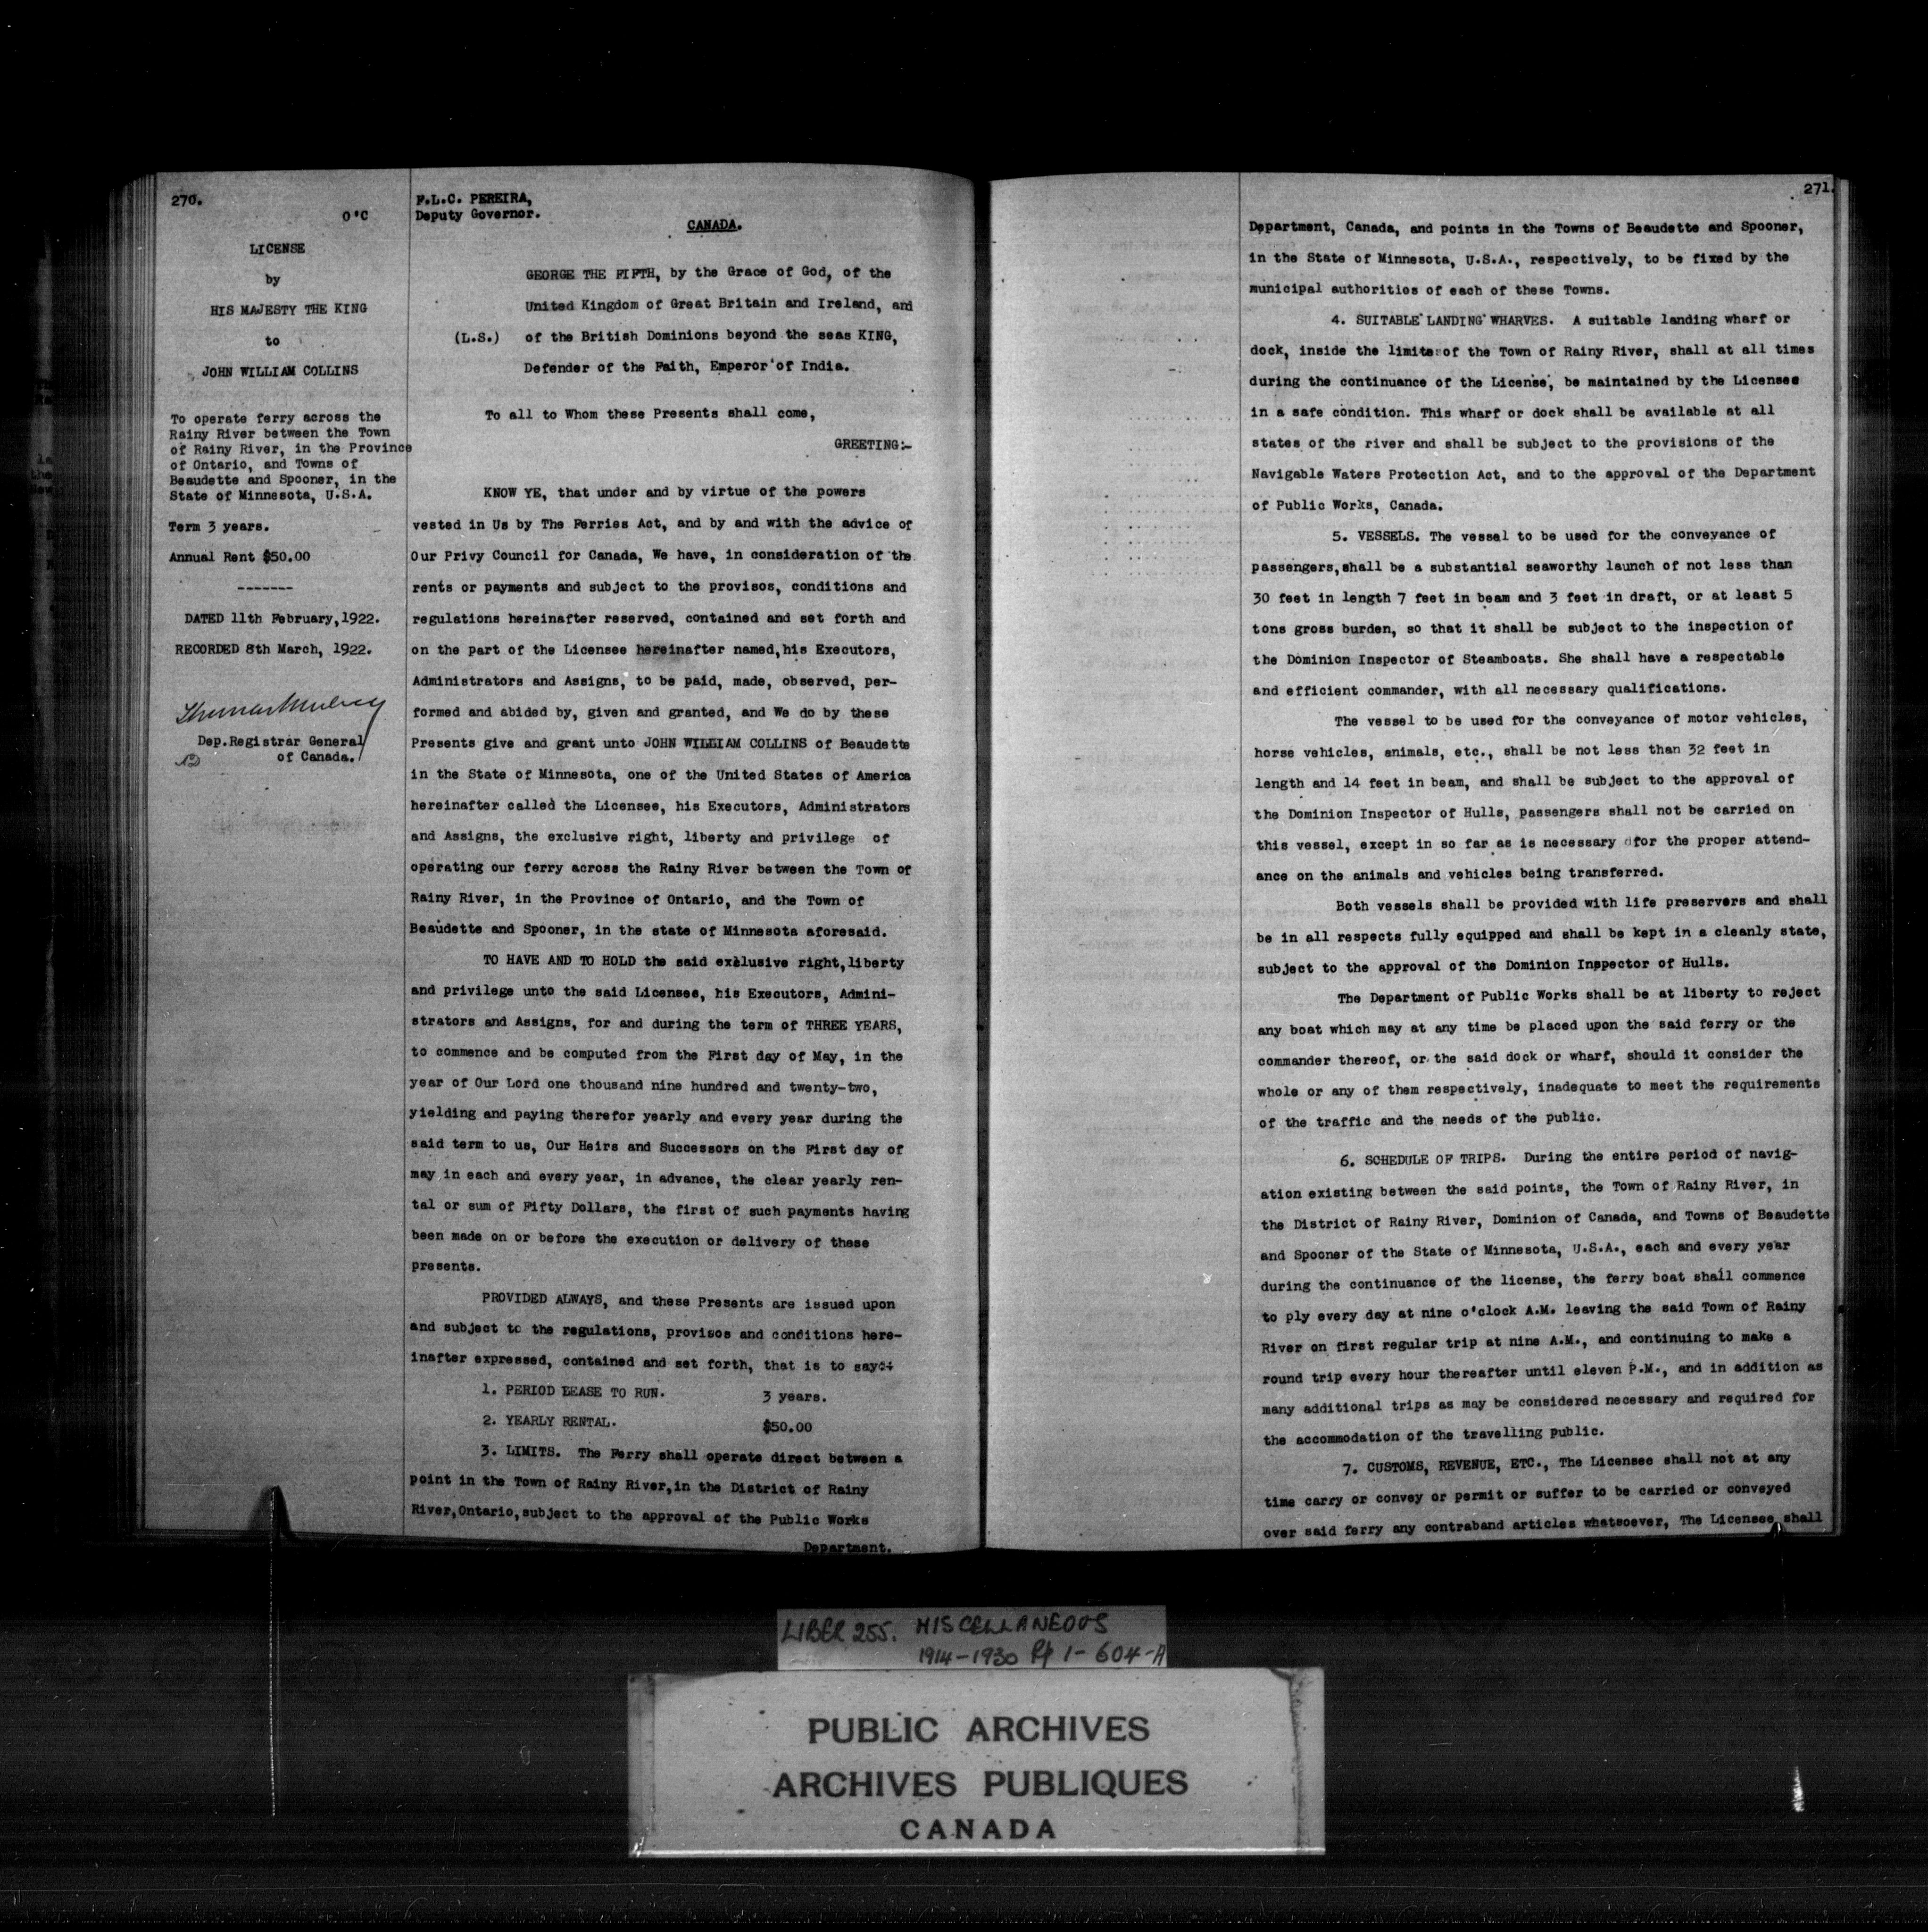 270.
O'C
LICENSE
by
HIS MAJESTY THE KING
to
JOHN WILLIAM COLLINS
To operate ferry across the
Rainy River between the Town
of Rainy River, in the Province
of Ontario, and Towns of
Beaudette and Spooner, in the
State of Minnesota, U.S.A.
Term 3 years.
Annual Rent $50.00
-------
DATED 11th February, 1922.
RECORDED 8th March, 1922.
Thomas Mulvey
Dep. Registrar General
of Canada.
F.L.C. PEREIRA,
Deputy Governor.
CANADA.
GEORGE THE FIFTH, by the Grace of God, of the
United Kingdom of Great Britain and Ireland, and
(L.S.) of the British Dominions beyond the seas KING,
Defender of the Faith, Emperor of India.
To all to Whom these Presents shall come,
GREETING:-
KNOW YE, that under and by virtue of the powers
vested in Us by The Ferries Act, and by and with the advice of
Our Privy Council for Canada, We have, in consideration of the
rents or payments and subject to the provisos, conditions and
regulations hereinafter reserved, contained and set forth and
on the part of the Licensee hereinafter named, his Executors,
Administrators and Assigns, to be paid, made, observed, per-
formed and abided by, given and granted, and We do by these
Presents give and grant unto JOHN WILLIAM COLLINS of Beaudette
in the State of Minnesota, one of the United States of America
hereinafter called the Licensee, his Executors, Administrators
and Assigns, the exclusive right, liberty and privilege of
operating our ferry across the Rainy River between the Town of
Rainy River, in the Province of Ontario, and the Town of
Beaudette and Spooner, in the state of Minnesota aforesaid.
TO HAVE AND TO HOLD the said exclusive right, liberty
and privilege unto the said Licensee, his Executors, Admini-
strators and Assigns, for and during the term of THREE YEARS,
to commence and be computed from the First day of May, in the
year of Our Lord one thousand nine hundred and twenty-two,
yielding and paying therefor yearly and every year during the
said term to us, Our Heirs and Successors on the First day of
may in each and every year, in advance, the clear yearly ren-
tal or sum of Fifty Dollars, the first of such payments having
been made on or before the execution or delivery of these
presents.
PROVIDED ALWAYS, and these Presents are issued upon
and subject to the regulations, provisos and conditions here-
inafter expressed, contained and set forth, that is to say:-
1. PERIOD LEASE TO RUN. 3 years.
2. YEARLY RENTAL. $50.00
3. LIMITS. The Ferry shall operate direct between a
point in the Town of Rainy River, in the District of Rainy
River, Ontario, subject to the approval of the Public Works
Department.
271.
Department, Canada, and points in the Towns of Beaudette and Spooner,
in the State of Minnesota, U.S.A., respectively, to be fixed by the
municipal authorities of each of these Towns.
4. SUITABLE LANDING WHARVES. A suitable landing wharf or
dock, inside the limits of the Town of Rainy River, shall at all times
during the continuance of the License, be maintained by the Licensee
in a safe condition. This wharf or dock shall be available at all
states of the river and shall be subject to the provisions of the
Navigable Waters Protection Act, and to the approval of the Department
of Public Works, Canada.
5. VESSELS. The vessel to be used for the conveyance of
passengers, shall be a substantial seaworthy launch of not less than
30 feet in length 7 feet in beam and 3 feet in draft, or at least 5
tons gross burden, so that it shall be subject to the inspection of
the Dominion Inspector of Steamboats. She shall have a respectable
and efficient commander, with all necessary qualifications.
The vessel to be used for the conveyance of motor vehicles,
horse vehicles, animals, etc., shall be not less than 32 feet in
length and 14 feet in beam, and shall be subject to the approval of
the Dominion Inspector of Hulls, passengers shall not be carried on
this vessel, except in so far as is necessary for the proper attend-
ance on the animals and vehicles being transferred.
Both vessels shall be provided with life preservers and shall
be in all respects fully equipped and shall be kept in a cleanly state,
subject to the approval of the Dominion Inspector of Hulls.
The Department of Public Works shall be at liberty to reject
any boat which may at any time be placed upon the said ferry or the
commander thereof, or the said dock or wharf, should it consider the
whole or any of them respectively, inadequate to meet the requirements
of the traffic and the needs of the public.
6. SCHEDULE OF TRIPS. During the entire period of navig-
ation existing between the said points, the Town of Rainy River, in
the District of Rainy River, Dominion of Canada, and Towns of Beaudette
and Spooner of the State of Minnesota, U.S.A., each and every year
during the continuance of the license, the ferry boat shall commence
to ply every day at nine o'clock A.M. leaving the said Town of Rainy
River on first regular trip at nine A.M., and continuing to make a
round trip every hour thereafter until eleven P.M., and in addition as
many additional trips as may be considered necessary and required for
the accommodation of the travelling public.
7. CUSTOMS, REVENUE, ETC., The Licensee shall not at any
time carry or convey or permit or suffer to be carried or conveyed
over said ferry any contraband articles whatsoever, The Licensee shall
LIBER 255. MISCELLANEOUS
1914-1930 Pp 1-604-A
PUBLIC ARCHIVES
ARCHIVES PUBLIQUES
CANADA